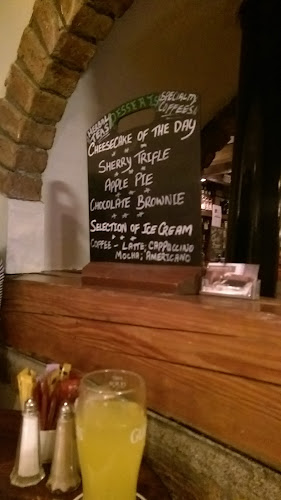 HERBAL TEAS
DESSERTS
SPECIALITY COFFEES!
CHEESECAKE OF THE DAY
SHERRY TRIFLE
APPLE PIE
CHOCOLATE BROWNIE
SELECTION OF ICE CREAM
COFFEE - LATTE; CAPPUCCINO
MOCHA; AMERICANO